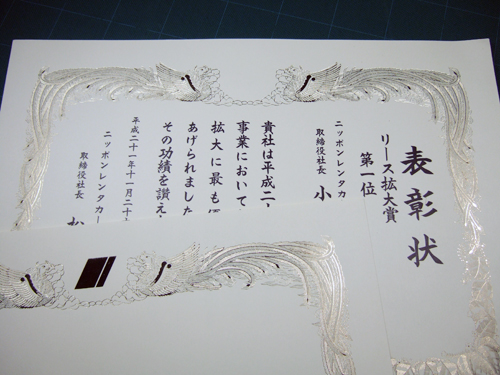 表彰状
リース拡大賞
第一位
ニッポンレンタカ
取締役社長 小
貴社は平成二
事業において
拡大に最も
あげられました
その功績を讃え
平成二十一年十一月二十
ニッポンレンタカー
取締役社長 松